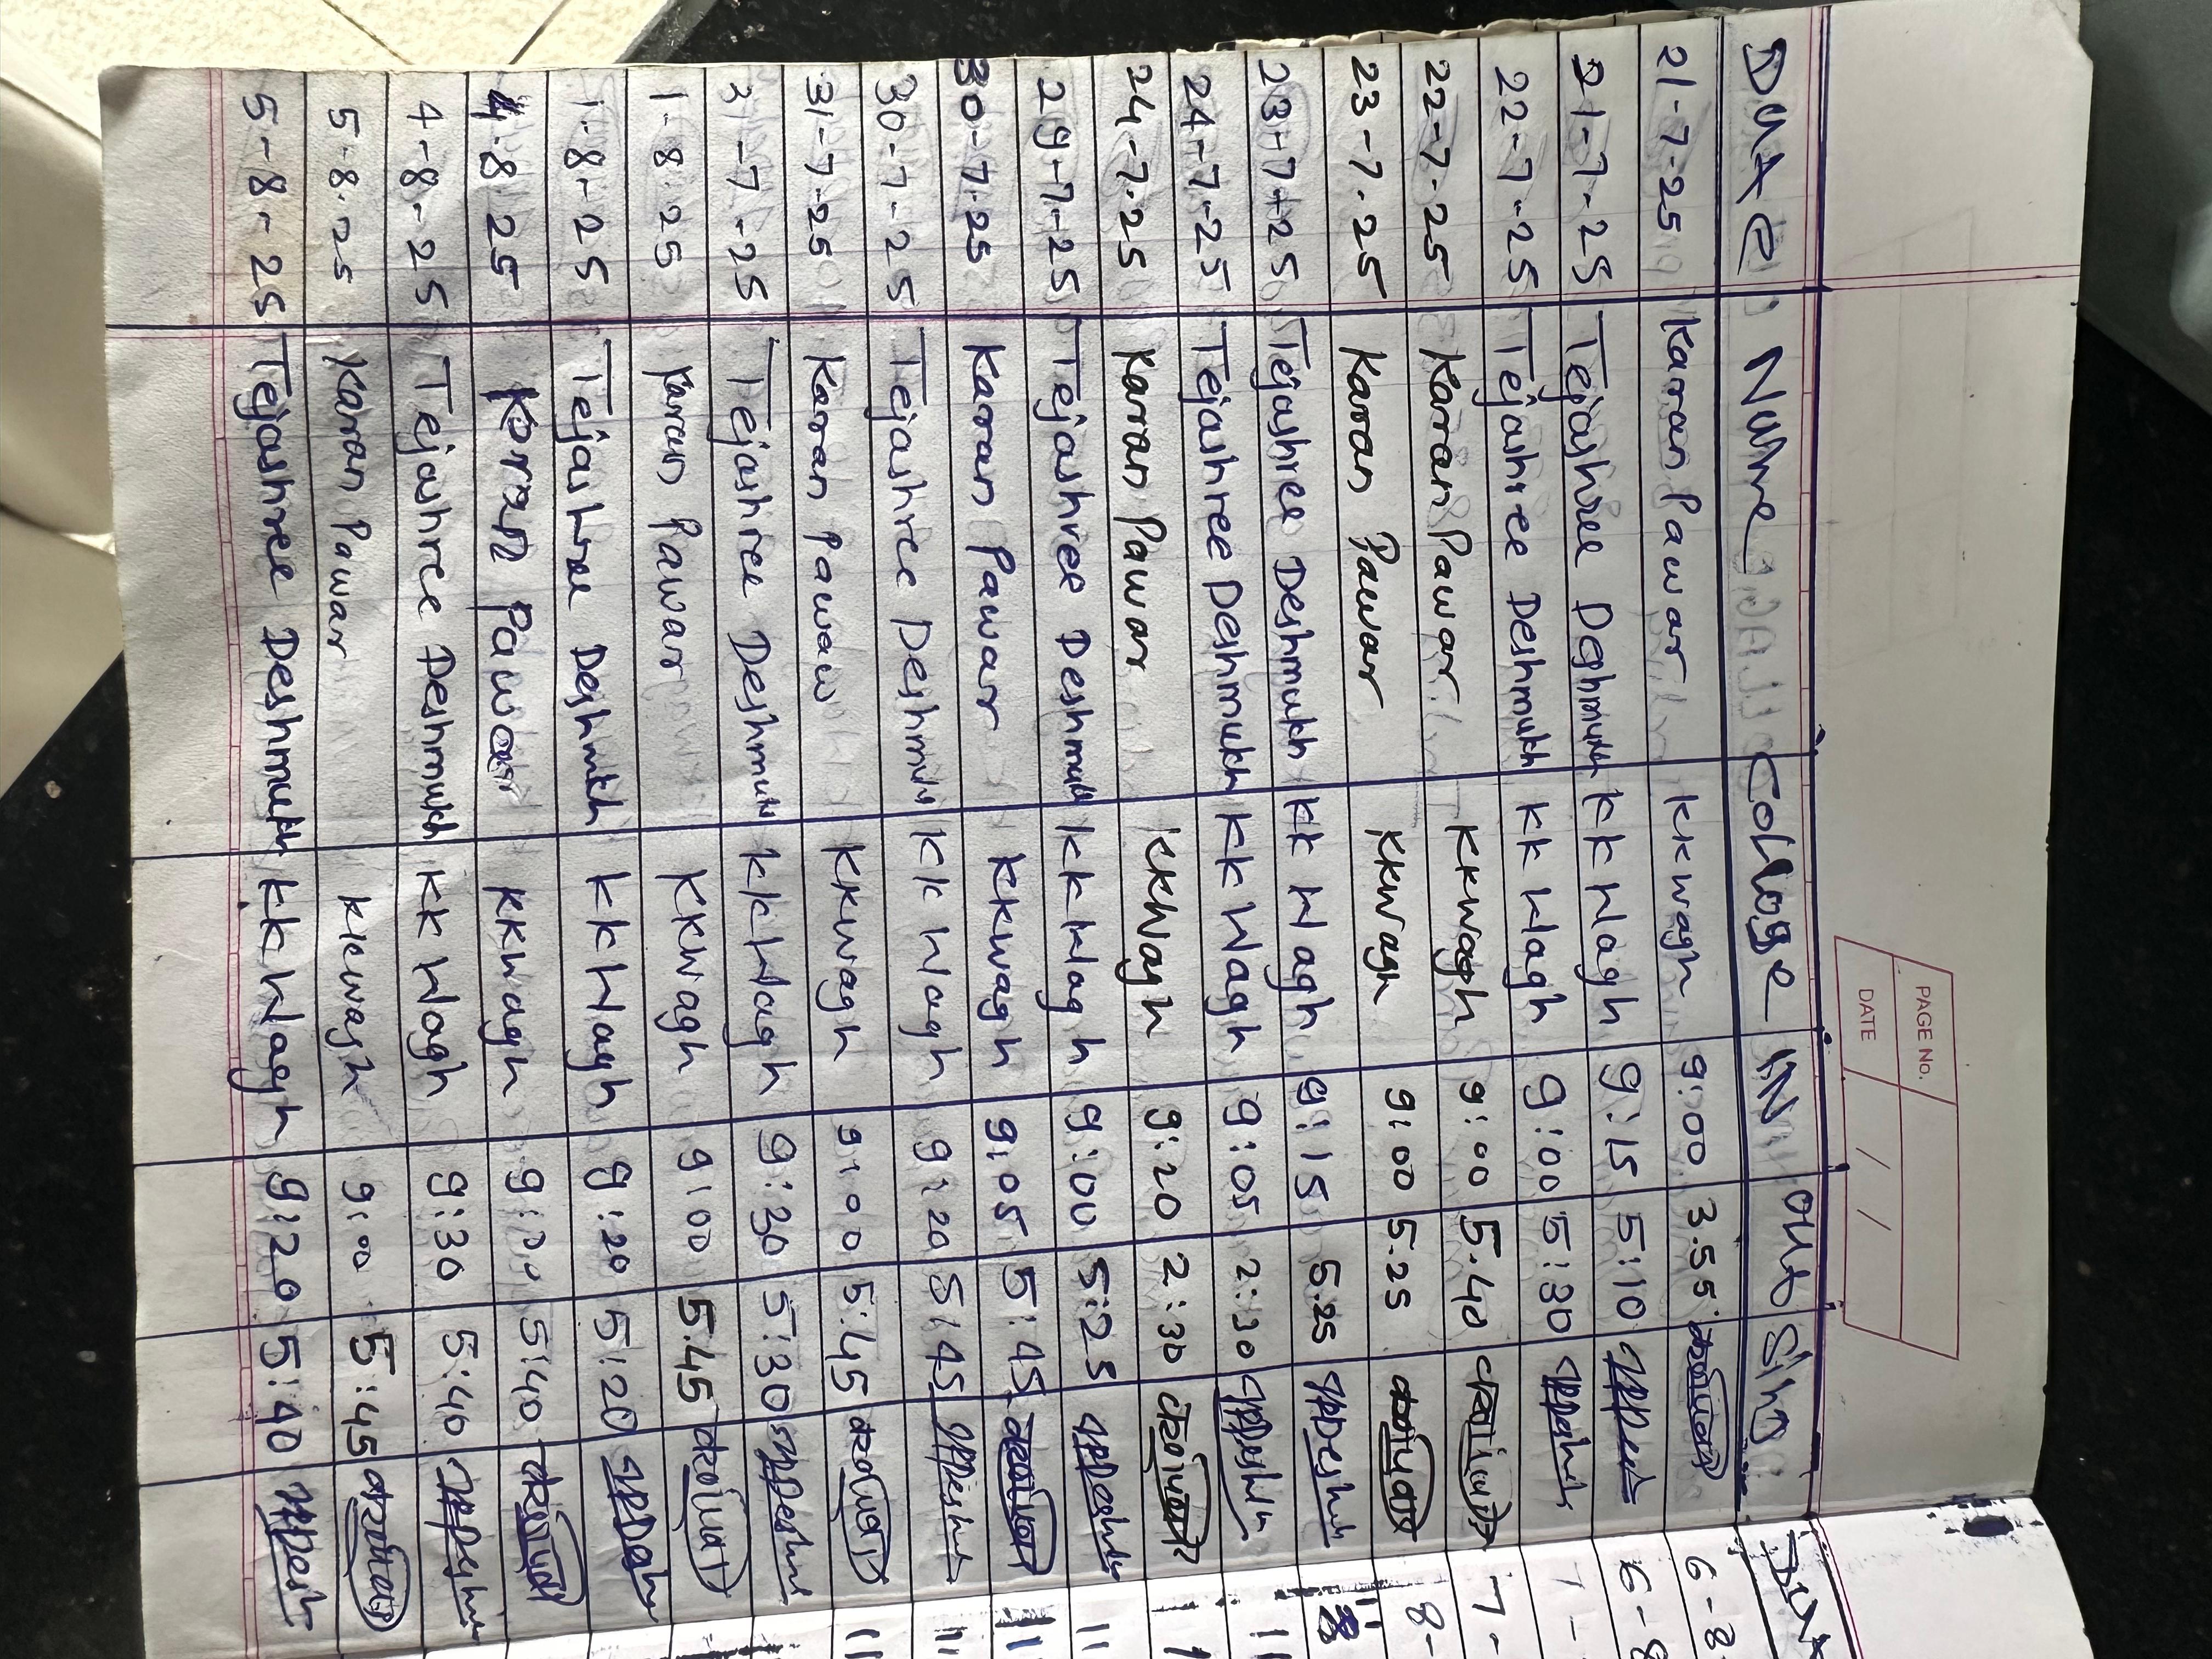 PAGE No.
DATE / /
Date Name College IN out Sing
21-7-25 Karan Pawar KKwagh 9:00 3.55
21-7-25 Tejashree Deshmukh KK Wagh 9:15 5:10
22-7-25 Tejashree Deshmukh KK Wagh 9:00 5:30
22-7-25 Karan Pawar KKwagh 9:00 5.40
23-7-25 Karan Pawar KKwagh 9:00 5.25
23-7-25 Tejashree Deshmukh KK Wagh 9:15 5.25
24-7-25 Tejashree Deshmukh KK Wagh 9:05 2:30
24-7-25 Karan Pawar KKWagh 9:20 2:30
29-7-25 Tejashree Deshmukh KK Wagh 9:00 5:25
30-7-25 Karan Pawar KKwagh 9:05 5:45
30-7-25 Tejashree Deshmukh KK Wagh 9:20 5:45
31-7-25 Karan Pawaw KKwagh 9:00 5:45
31-7-25 Tejashree Deshmukh KK Wagh 9:30 5:30
1-8-25 Karan Pawar KKWagh 9:00 5.45
1-8-25 Tejashree Deshmukh KK Wagh 9:20 5:20
4-8 25 Karan Pawar KKwagh 5:40
4-8-25 Tejashree Deshmukh KK Wagh 9:30 5:40
5-8-25 Karan Pawar KKwagh 9:00 5:45
5-8-25 Tejashree Deshmukh KK Wagh 9:20 5:40
6-8-
6-8
7-
8-